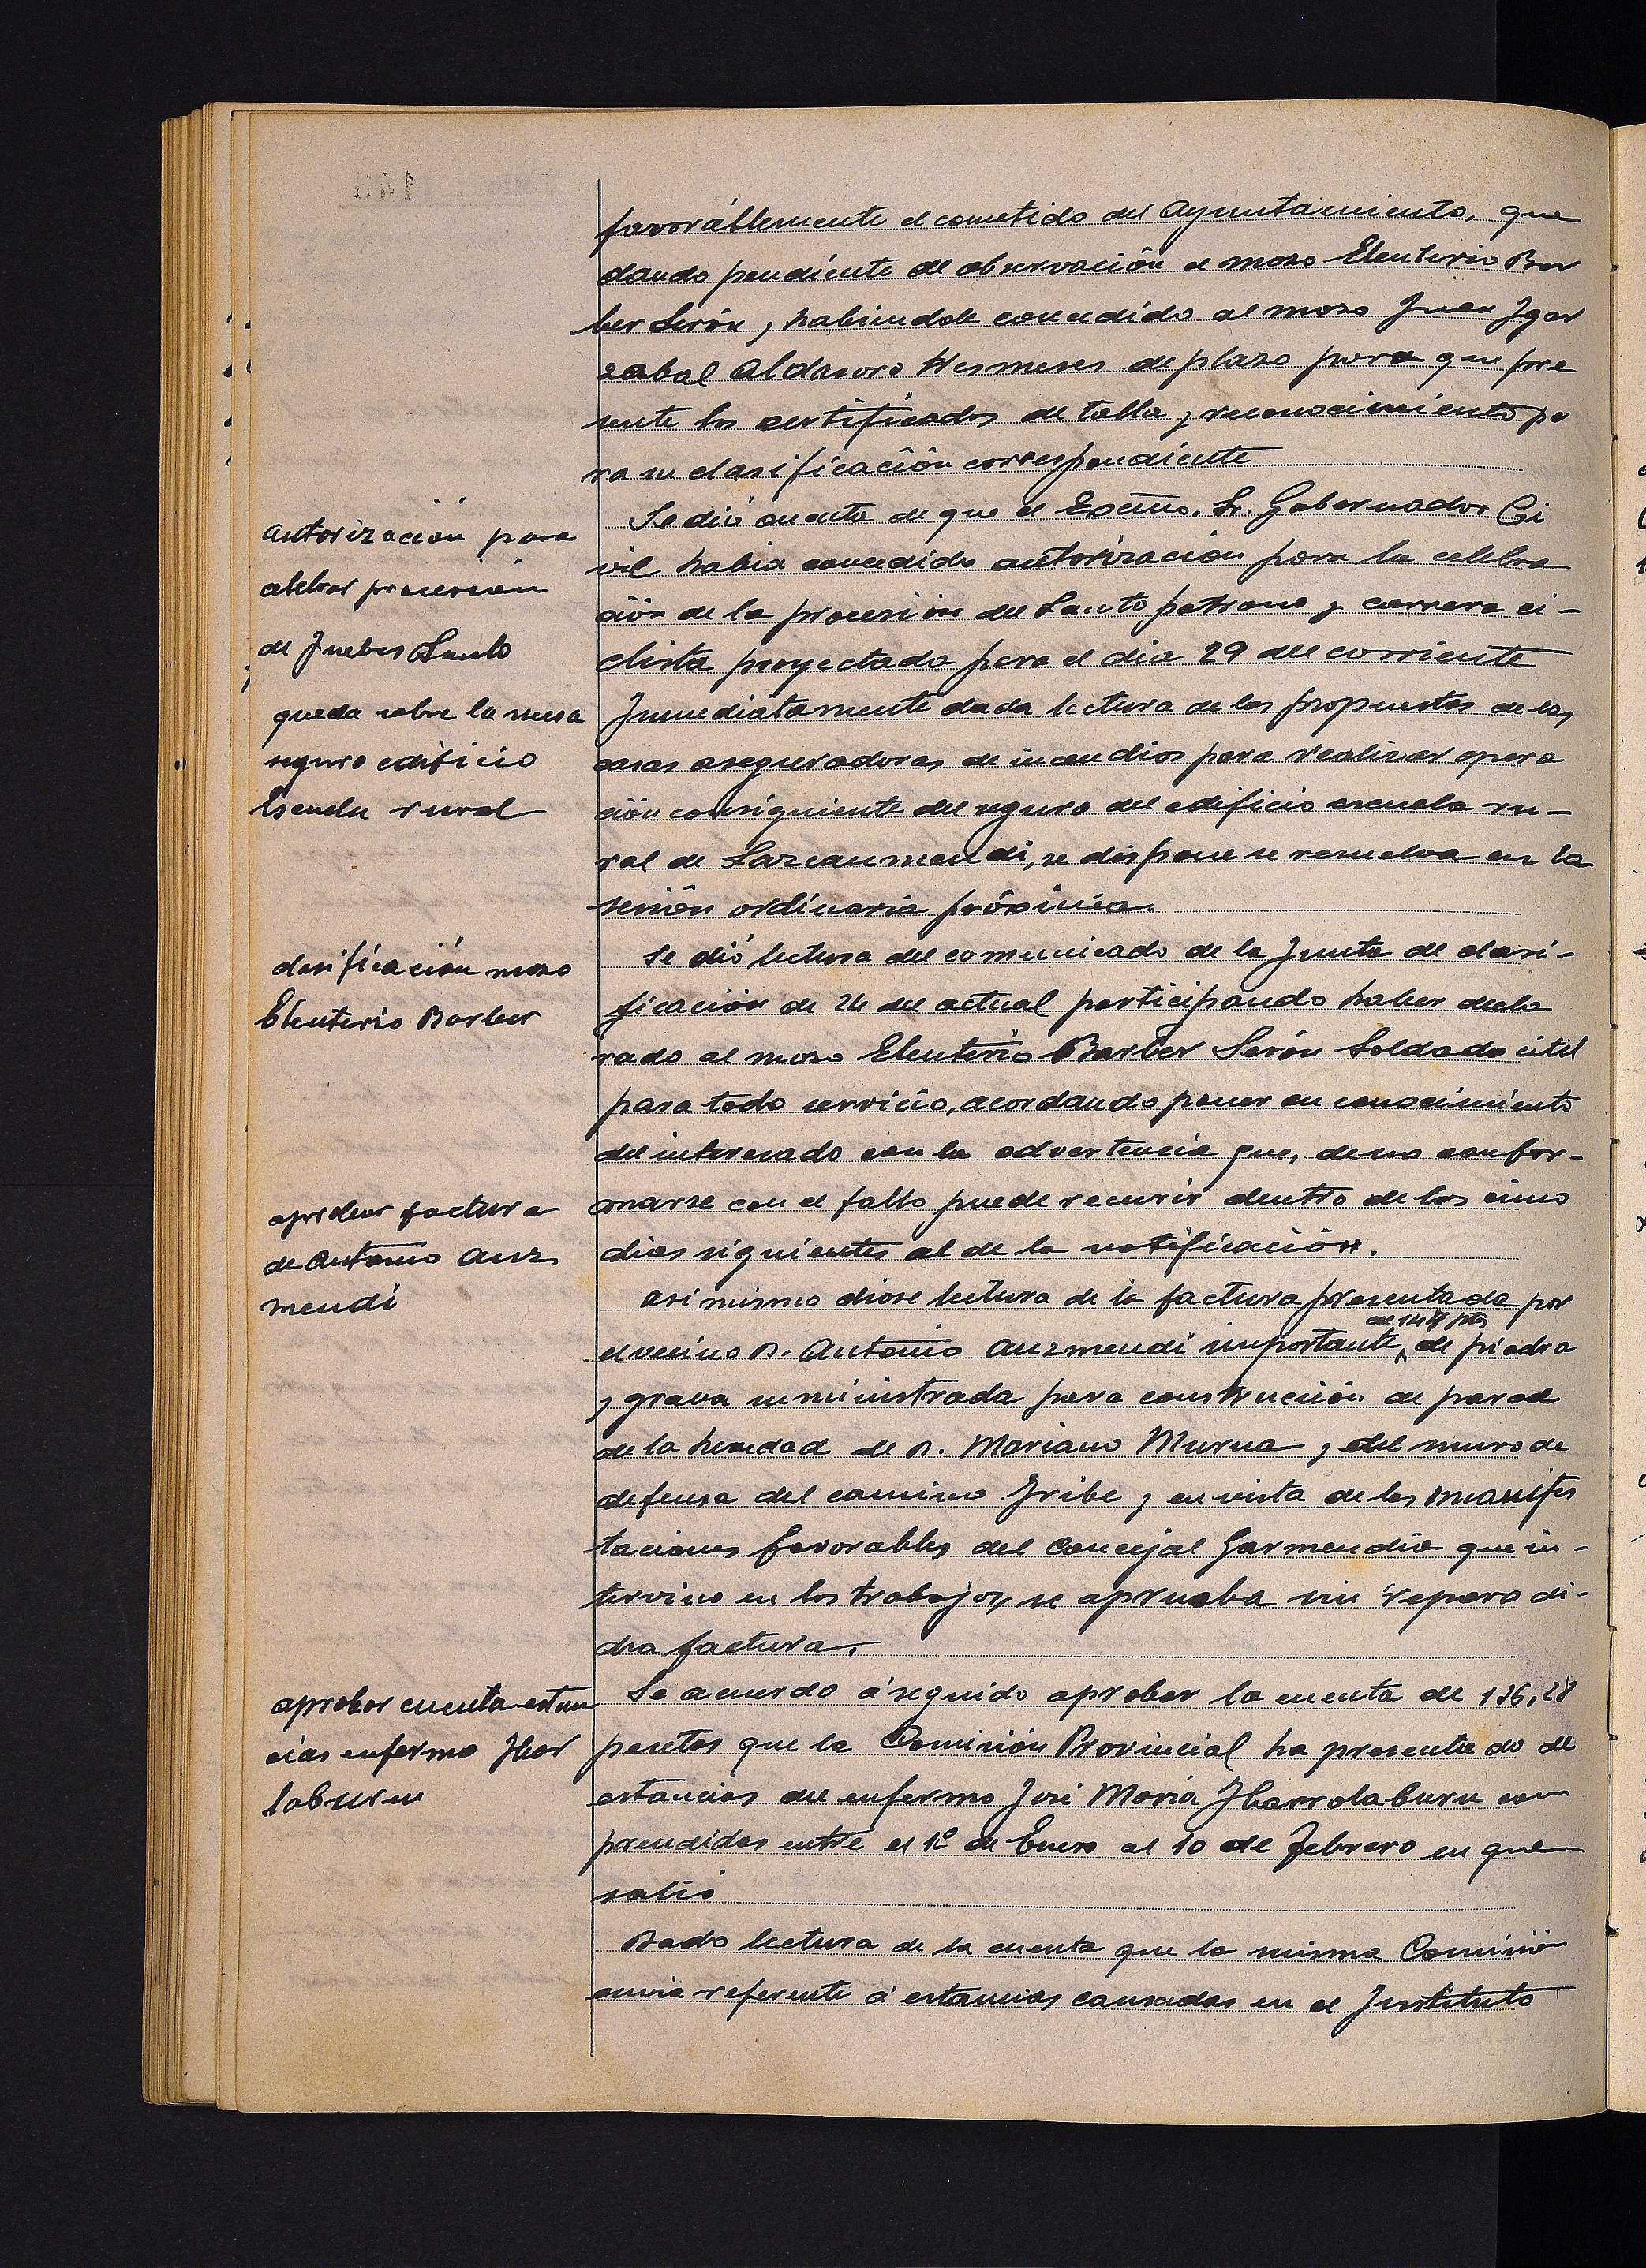 favorablemente el cometido del Ayuntamiento, que
dando pendiente de observación el mozo Eleuterio Bar
ber Serón, habiendole concedido al mozo Juan Ygar
zabal Aldasoro tres meses de plazo para que pre
sente los certificados de talla y reconocimiento pa
ra su clasificación correspondiente
autorización para
celebrar procesión
de Juebes Santo
Se dió cuenta de que el Excmo. Sr. Gobernador Ci
vil habia concedido autorización para la celebra
ción de la procesión del Santo patrono y carrera ci-
clista proyectada para el dia 29 del corriente
queda sobre la mesa
seguro edificio
Escuela rural
Inmediatamente dada lectura de las propuestas de las
casas aseguradoras de incendios para realizar opera
ción consiguiente del seguro del edificio escuela ru-
ral de Lazcaumendi, se dispone se resuelva en la
sesión ordinaria próxima.
clasificación mozo
Eleuterio Barber
Se dió lectura del comunicado de la Junta de clasi-
ficación de 24 del actual participando haber decla
rado al mozo Eleuterio Barber Serón Soldado útil
para todo servicio, acordando poner en conocimiento
del interesado con la advertencia que, de no confor-
marse con el fallo puede recurrir dentro de los cinco
dias siguientes al de la notificación.
aprobar factura
de Antonio Auz
mendi
asi mismo diose lectura de la factura presentada por
el vecino D. Antonio Auzmendi importante de piedra
y grava suministrada para construcción de pared
de la heredad de D. Mariano Murua y del muro de
defensa del camino Iribe y en vista de las manifes
taciones favorables del Concejal Garmendia que in-
tervino en los trabajos, se aprueba sin reparo di-
cha factura.
aprobar cuenta estan
cias enfermo Ybar
laburu
Se acuerdo á seguido aprobar la cuenta de 136,28
pesetas que la Comisión Provincial ha presentado de
estancias del enfermo José Maria Ybarrolaburu com
prendidas entre el 1º de Enero al 10 de Febrero en que
salió
Dado lectura de la cuenta que la misma Comisió
envia referente á estancias causadas en el Instituto